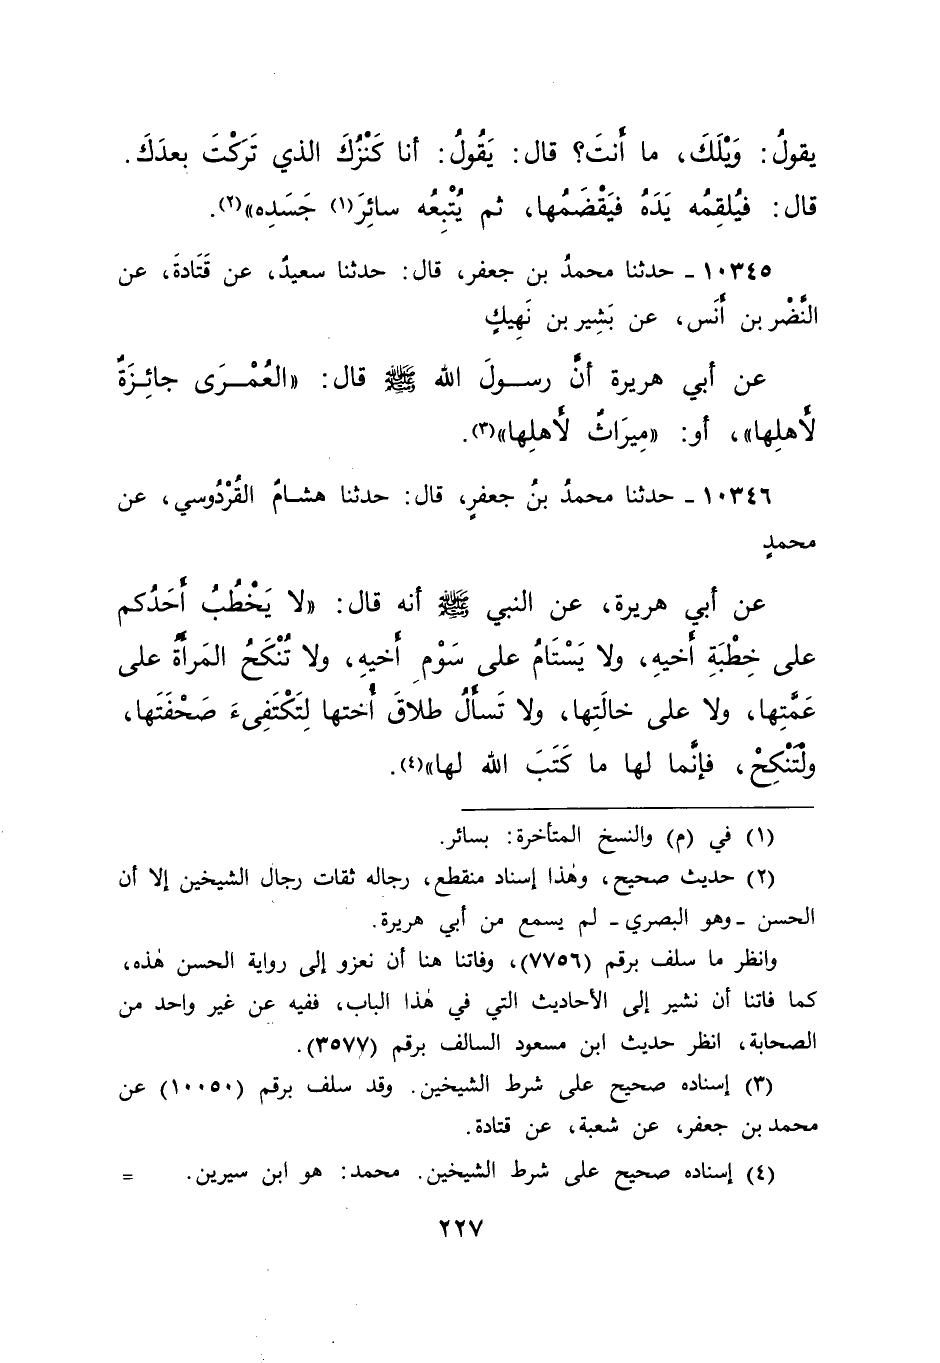 يقولُ: وَيْلَكَ، ما أَنتَ؟ قال: يَقُولُ: أنا كَنْزُكَ الذي تَرَكْتَ بعدَكَ.
قال: فيُلقِمُه يَدَهُ فيَقْضَمُها، ثم يُتْبِعُه سائِرَ(١) جَسَدِه»(٢).
١٠٣٤٥ ـ حدثنا محمدُ بن جعفر، قال: حدثنا سعيدٌ، عن قَتَادةَ، عن
النَّضْر بن أَنَس، عن بَشِير بن نَهِيكٍ
عن أبي هريرة أنَّ رسولَ الله ﷺ قال: «العُمْرَى جائِزَةٌ
لأَهلِها»، أو: «مِيرَاثٌ لأَهلِها»(٣).
١٠٣٤٦ ـ حدثنا محمدُ بنُ جعفرٍ، قال: حدثنا هشامٌ القُرْدُوسي، عن
محمدٍ
عن أبي هريرة، عن النبي ﷺ أنه قال: «لا يَخْطُبُ أَحَدُكم
على خِطْبَةِ أَخيهِ، ولا يَسْتَامُ على سَوْمِ أَخيهِ، ولا تُنْكَحُ المَرأَةُ على
عَمَّتِها، ولا على خالَتِها، ولا تَسأَلُ طلاقَ أُختها لِتَكْتَفِىءَ صَحْفَتَها،
ولْتَنْكِحْ، فإنَّما لها ما كَتَبَ الله لها»(٤).
(١) في (م) والنسخ المتأخرة: بسائر.
(٢) حديث صحيح، وهٰذا إسناد منقطع، رجاله ثقات رجال الشيخين إلا أن
الحسن ـ وهو البصري ـ لم يسمع من أبي هريرة.
وانظر ما سلف برقم (٧٧٥٦)، وفاتنا هنا أن نعزو إلى رواية الحسن هٰذه،
كما فاتنا أن نشير إلى الأحاديث التي في هٰذا الباب، ففيه عن غير واحد من
الصحابة، انظر حديث ابن مسعود السالف برقم (٣٥٧٧).
(٣) إسناده صحيح على شرط الشيخين. وقد سلف برقم (١٠٠٥٠) عن
محمد بن جعفر، عن شعبة، عن قتادة.
(٤) إسناده صحيح على شرط الشيخين. محمد: هو ابن سيرين. =
٢٢٧